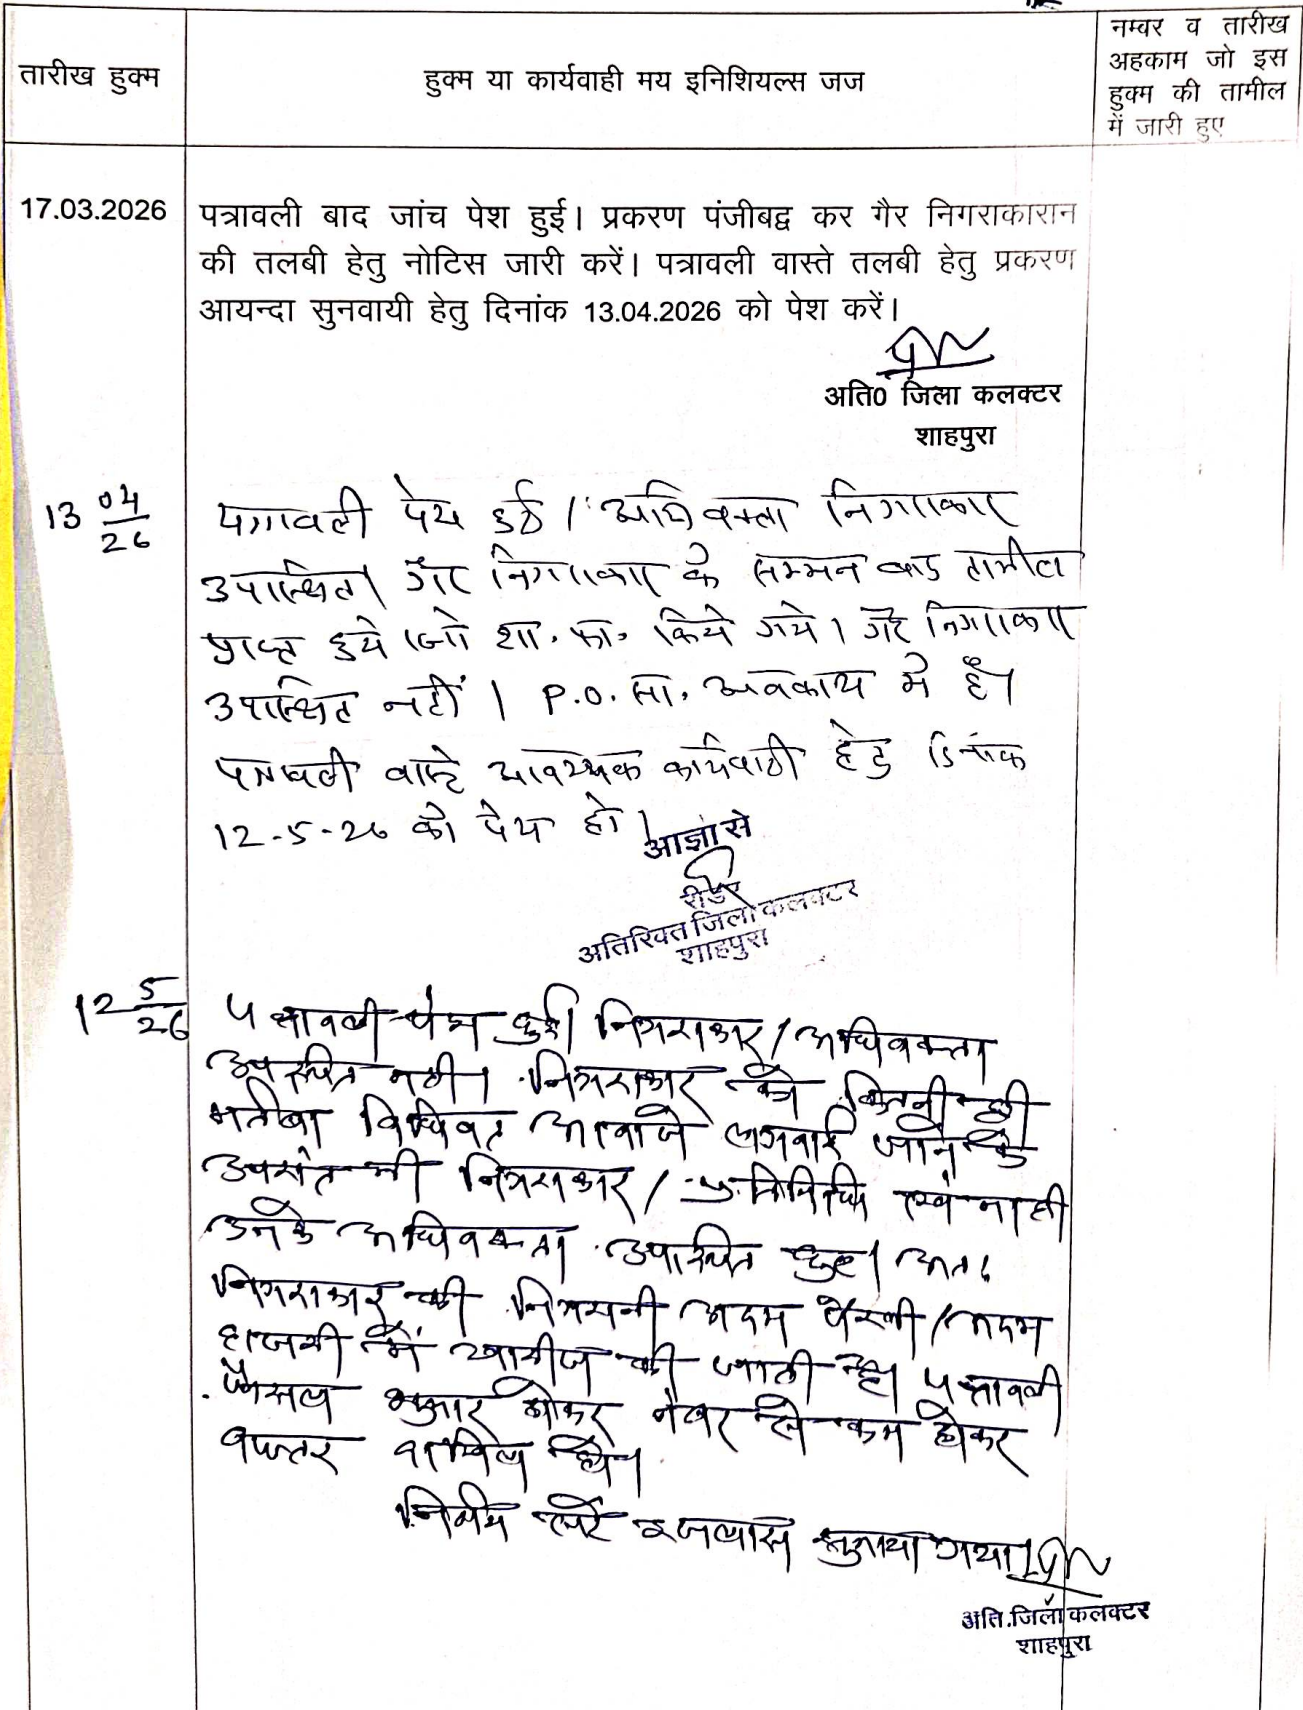 तारीख हुक्म
हुक्म या कार्यवाही मय इनिशियल्स जज
नम्बर व तारीख
अहकाम जो इस
हुक्म की तामील
में जारी हुए
17.03.2026
पत्रावली बाद जांच पेश हुई। प्रकरण पंजीबद्व कर गैर निगराकारान
की तलबी हेतु नोटिस जारी करें। पत्रावली वास्ते तलबी हेतु प्रकरण
आयन्दा सुनवायी हेतु दिनांक 13.04.2026 को पेश करें।
अति0 जिला कलक्टर
शाहपुरा
13 04/26
पत्रावली पेश हुई। अधिवक्ता निगराकार
उपस्थित। गैर निगराकार के सम्मन बाद तामील
प्राप्त हुये जो शा. फा. किये गये। गैर निगराकार
उपस्थित नहीं। P.O. सा. अवकाश में है।
पत्रावली वास्ते आवश्यक कार्यवाही हेतु दिनांक
12-5-26 को पेश हो।
आज्ञा से
रीडर
अतिरिक्त जिला कलक्टर
शाहपुरा
12 5/26
पत्रावली पेश हुई। निगराकार/अधिवक्ता
उपस्थित नहीं। निगराकार को कितनी ही
मर्तबा विधिवत आवाजे लगवाई जाने के
उपरांत भी निगराकार/प्रतिनिधि एवं ना ही
उनके अधिवक्ता उपस्थित हुए। अतः
निगराकार की निगरानी अदम पैरवी/अदम
हाजरी में खारीज की जाती है। पत्रावली
फैसल शुमार होकर नंबर से कम होकर
दफ्तर दाखिल हो।
निर्णय सरे इजलास सुनाया गया।
अति.जिला कलक्टर
शाहपुरा